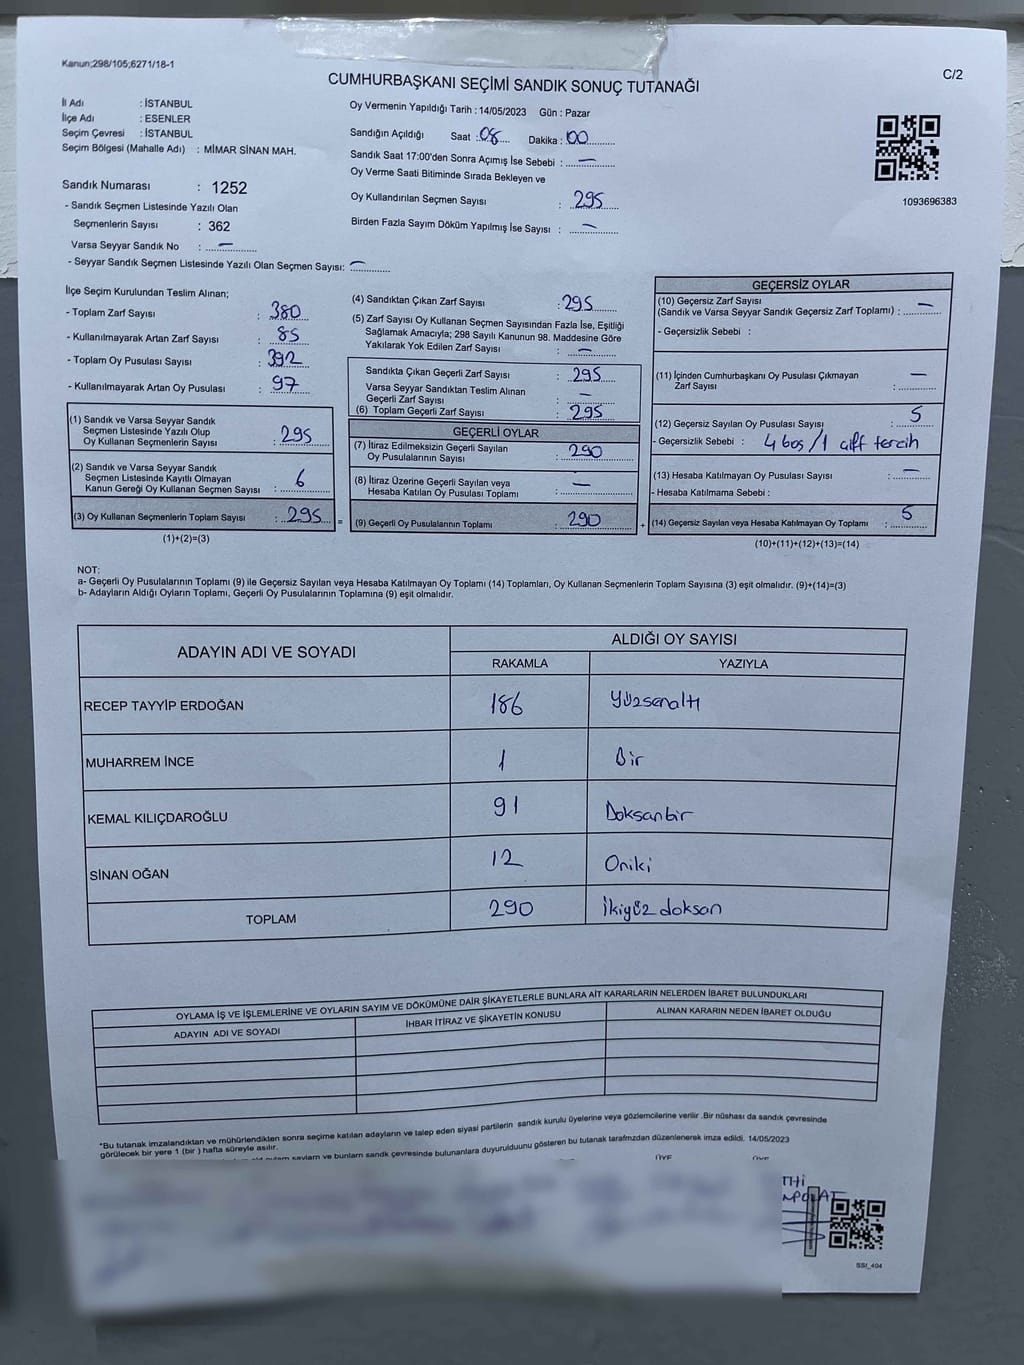 Kanun;298/105;6271/18-1
C/2
CUMHURBAŞKANI SEÇİMİ SANDIK SONUÇ TUTANAĞI
İl Adı : İSTANBUL
İlçe Adı : ESENLER
Seçim Çevresi : İSTANBUL
Seçim Bölgesi (Mahalle Adı) : MİMAR SİNAN MAH.
Sandık Numarası : 1252
- Sandık Seçmen Listesinde Yazılı Olan
Seçmenlerin Sayısı : 362
Varsa Seyyar Sandık No : —
- Seyyar Sandık Seçmen Listesinde Yazılı Olan Seçmen Sayısı: —
Oy Vermenin Yapıldığı Tarih : 14/05/2023 Gün : Pazar
Sandığın Açıldığı Saat : 08 Dakika : 00
Sandık Saat 17:00'den Sonra Açımış İse Sebebi : —
Oy Verme Saati Bitiminde Sırada Bekleyen ve
Oy Kullandırılan Seçmen Sayısı : 295
Birden Fazla Sayım Döküm Yapılmış İse Sayısı : —
1093696383
İlçe Seçim Kurulundan Teslim Alınan;
- Toplam Zarf Sayısı : 380
- Kullanılmayarak Artan Zarf Sayısı : 85
- Toplam Oy Pusulası Sayısı : 392
- Kullanılmayarak Artan Oy Pusulası : 97
(1) Sandık ve Varsa Seyyar Sandık
Seçmen Listesinde Yazılı Olup
Oy Kullanan Seçmenlerin Sayısı : 295
(2) Sandık ve Varsa Seyyar Sandık
Seçmen Listesinde Kayıtlı Olmayan
Kanun Gereği Oy Kullanan Seçmen Sayısı : 6
(3) Oy Kullanan Seçmenlerin Toplam Sayısı : 295 =
(1)+(2)=(3)
(4) Sandıktan Çıkan Zarf Sayısı : 295
(5) Zarf Sayısı Oy Kullanan Seçmen Sayısından Fazla İse, Eşitliği
Sağlamak Amacıyla; 298 Sayılı Kanunun 98. Maddesine Göre
Yakılarak Yok Edilen Zarf Sayısı : —
Sandıkta Çıkan Geçerli Zarf Sayısı : 295
Varsa Seyyar Sandıktan Teslim Alınan
Geçerli Zarf Sayısı : —
(6) Toplam Geçerli Zarf Sayısı : 295
GEÇERLİ OYLAR
(7) İtiraz Edilmeksizin Geçerli Sayılan
Oy Pusulalarının Sayısı : 290
(8) İtiraz Üzerine Geçerli Sayılan veya
Hesaba Katılan Oy Pusulası Toplamı : —
(9) Geçerli Oy Pusulalarının Toplamı : 290 +
GEÇERSİZ OYLAR
(10) Geçersiz Zarf Sayısı
(Sandık ve Varsa Sandık Geçersiz Zarf Toplamı) : —
- Geçersizlik Sebebi :
(11) İçinden Cumhurbaşkanı Oy Pusulası Çıkmayan
Zarf Sayısı : —
(12) Geçersiz Sayılan Oy Pusulası Sayısı : 5
- Geçersizlik Sebebi : 4 boş / 1 çift tercih
(13) Hesaba Katılmayan Oy Pusulası Sayısı : —
- Hesaba Katılmama Sebebi :
(14) Geçersiz Sayılan veya Hesaba Katılmayan Oy Toplamı : 5
(10)+(11)+(12)+(13)=(14)
NOT:
a- Geçerli Oy Pusulalarının Toplamı (9) ile Geçersiz Sayılan veya Hesaba Katılmayan Oy Toplamı (14) Toplamları, Oy Kullanan Seçmenlerin Toplam Sayısına (3) eşit olmalıdır. (9)+(14)=(3)
b- Adayların Aldığı Oyların Toplamı, Geçerli Oy Pusulalarının Toplamına (9) eşit olmalıdır.
ADAYIN ADI VE SOYADI
ALDIĞI OY SAYISI
RAKAMLA YAZIYLA
RECEP TAYYİP ERDOĞAN 186 Yüzsenaltı
MUHARREM İNCE 1 Bir
KEMAL KILIÇDAROĞLU 91 Doksanbir
SİNAN OĞAN 12 Oniki
TOPLAM 290 İkiyüz doksan
OYLAMA İŞ VE İŞLEMLERİNE VE OYLARIN SAYIM VE DÖKÜMÜNE DAİR ŞİKAYETLERLE BUNLARA AİT KARARLARIN NELERDEN İBARET BULUNDUKLARI
ADAYIN ADI VE SOYADI İHBAR İTİRAZ VE ŞİKAYETİN KONUSU ALINAN KARARIN NEDEN İBARET OLDUĞU
"Bu tutanak imzalandıktan ve mühürlendikten sonra seçime katılan adayların ve talep eden siyasi partilerin sandık kurulu üyelerine veya gözlemcilerine verilir .Bir nüshası da sandık çevresinde
görülecek bir yere 1 (bir ) hafta süreyle asılır.
sayım ve bunların sandık çevresinde bulunanlara duyurulduunu gösteren bu tutanak tarafımızdan düzenlenerek imza edildi. 14/05/2023
ÜYE ÜYE
SSI_404